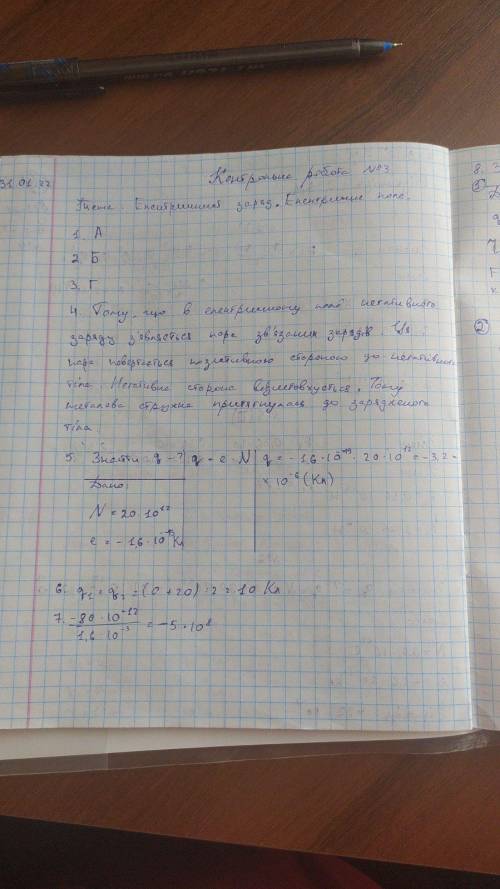 31.01.22
Контрольна робота №3
Тема: Електричний заряд. Електричне поле.
1. А
2. Б
3. Г
4. Тому, що в електричному полі негативного
заряду з'являється пара зв'язаних зарядів. Ця
пара повертається позитивною стороною до негативного
тіла. Негативна сторона відштовхується. Тому
металева стружка притягнулась до зарядженого
тіла.
5. Знайти: q - ? q = e · N q = -1,6 · 10⁻¹⁹ · 20 · 10¹² = -3,2 ×
Дано: × 10⁻⁶ (Кл)
N = 20 · 10¹²
e = -1,6 · 10⁻¹⁹ Кл
6. q₁ = q₂ = (0 + 20) : 2 = 10 Кл
7. -80 · 10⁻¹²
= -5 · 10⁸
1,6 · 10
8. З
①
Д
q
②